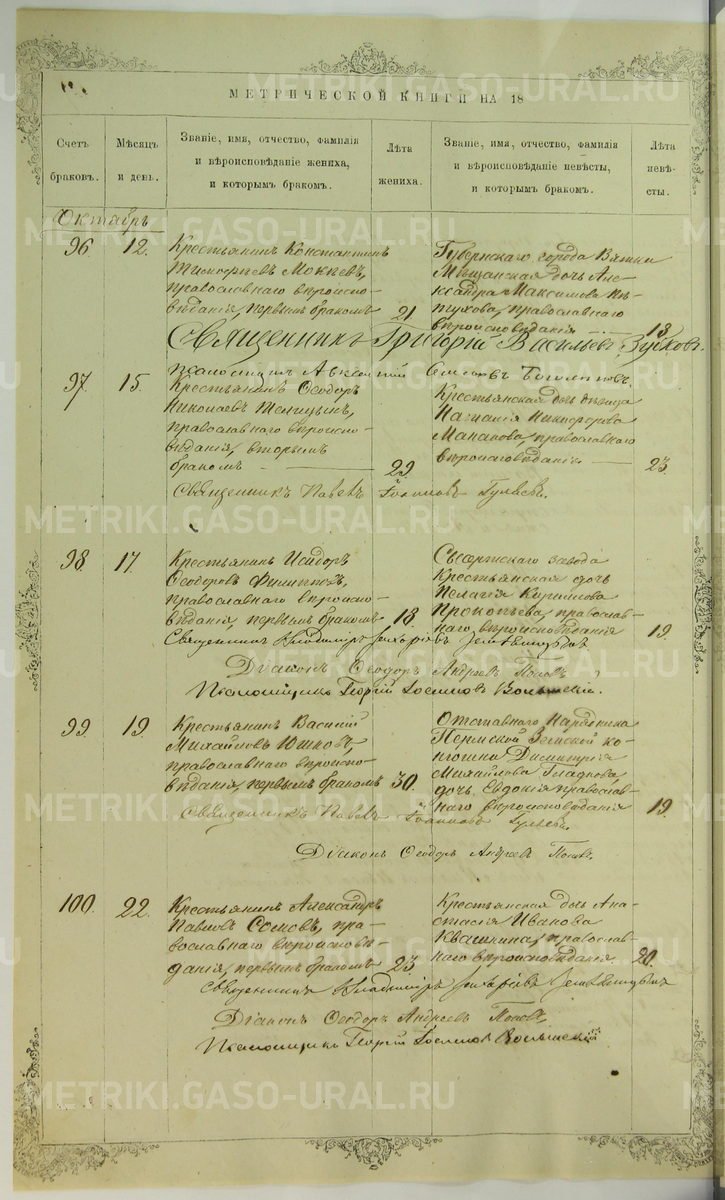 МЕТРИЧЕСКОЙ КНИГИ НА 18
Счетъ браковъ.
Мѣсяцъ и день.
Званіе, имя, отчество, фамилія и вѣроисповѣданіе жениха, и которымъ бракомъ.
Лѣта жениха.
Званіе, имя, отчество, фамилія и вѣроисповѣданіе невѣсты, и которымъ бракомъ.
Лѣта невѣсты.
Октябрь
96 12.
Крестьянинъ Константинъ
Тимофѣевъ Мокѣевъ,
православнаго вѣроиспо-
вѣданія, первымъ бракомъ 21
Губернскаго города Вятки
Мѣщанская дочь Але-
ксандра Максимова
православнаго
вѣроисповѣданія 18.
Священникъ Григорій Васильевъ Зубковъ.
Псаломщикъ
97 15.
Крестьянинъ Ѳеодоръ
Николаевъ
православнаго вѣроиспо-
вѣданія, вторымъ
бракомъ 29
Крестьянская дочь дѣвица
Наталія Никифорова
Манакова, православнаго
вѣроисповѣданія 23.
Священникъ Павелъ Іоанновъ Гуляевъ.
98. 17.
Крестьянинъ Исидоръ
Ѳеодоровъ Филипповъ,
православнаго вѣроиспо-
вѣданія, первымъ бракомъ 18.
Сысертскаго завода
Крестьянская дочь
Пелагія Кирилова
Прокопьева, православ-
наго вѣроисповѣданія 19.
Священникъ Владиміръ Захаріевъ
Діаконъ Ѳеодоръ Андреевъ Поповъ
Псаломщикъ Георгій Іосифовъ
99 19.
Крестьянинъ Василій
Михайловъ Юшковъ,
православнаго вѣроиспо-
вѣданія, первымъ бракомъ 30.
Отставнаго
Пермской Земской ко-
Димитрія
Михайлова Гладкова,
дочь Евдокія православ-
наго вѣроисповѣданія 19.
Священникъ Павелъ Іоанновъ Гуляевъ.
Діаконъ Ѳеодоръ Андреевъ Поповъ.
100. 22.
Крестьянинъ Александръ
Павловъ Сомовъ, пра-
вославнаго вѣроисповѣ-
данія, первымъ бракомъ 23.
Крестьянская дочь Ана-
стасія Иванова
Квашнина, православ-
наго вѣроисповѣданія 20.
Священникъ Владиміръ Захаріевъ
Діаконъ Ѳеодоръ Андреевъ Поповъ,
Псаломщикъ Георгій Іосифовъ
METRIKI.GASO-URAL.RU